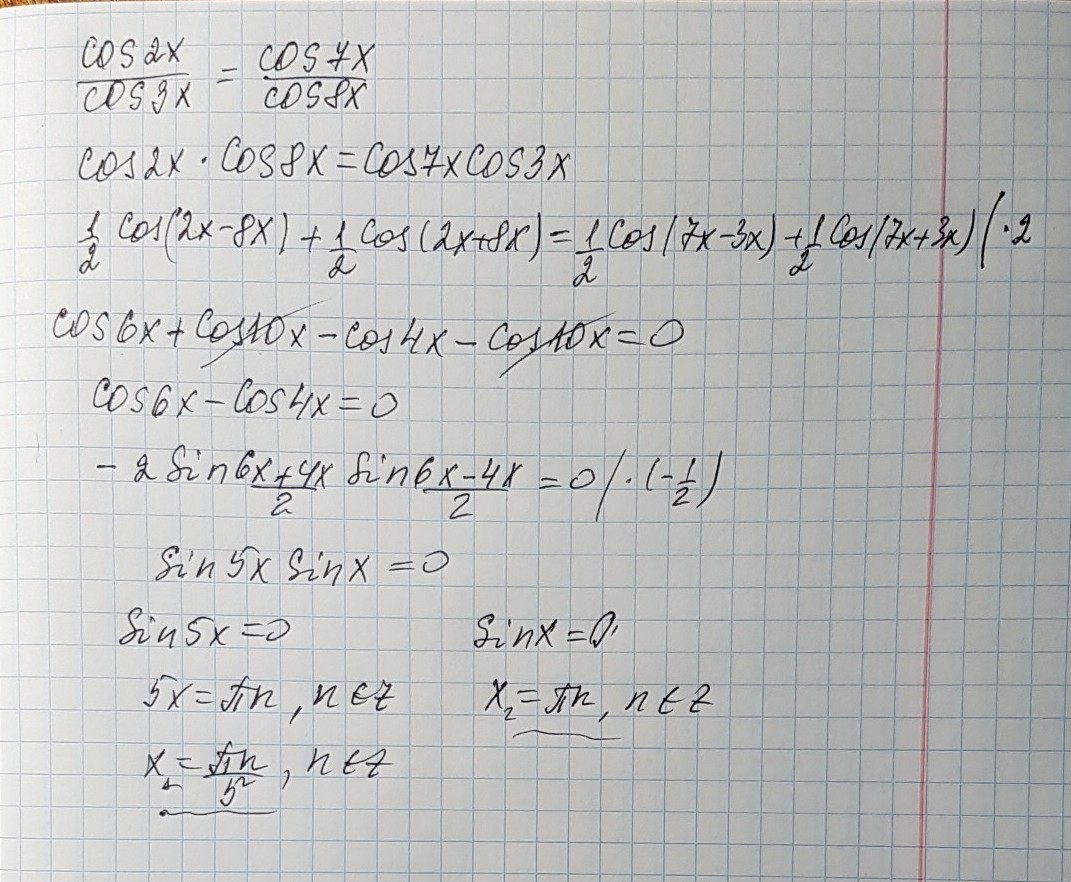 cos2x/cos3x = cos7x/cos8x
cos2x · cos8x = cos7x cos3x
1/2 cos(2x-8x) + 1/2 cos(2x+8x) = 1/2 cos(7x-3x) + 1/2 cos(7x+3x) / ·2
cos6x + cos10x - cos4x - cos10x = 0
cos6x - cos4x = 0
-2 sin (6x+4x)/2 sin (6x-4x)/2 = 0 / · (-1/2)
sin5x sinx = 0
sin5x = 0 sinx = 0
5x = πn, n∈z x₂ = πn, n∈z
x₁ = πn/5, n∈z